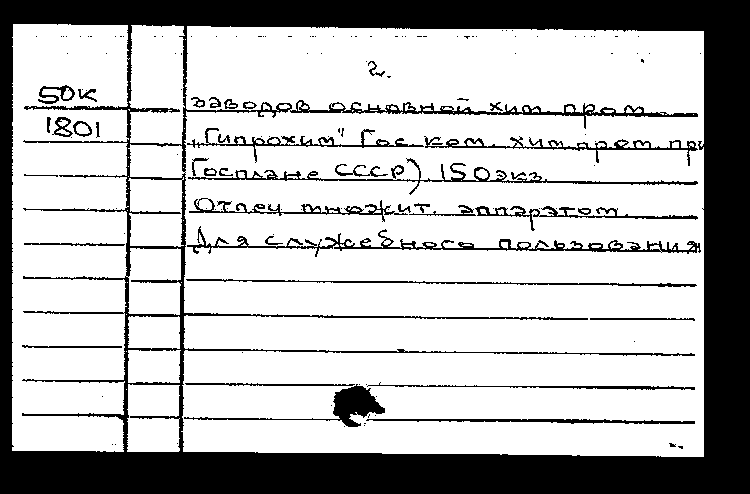 2.
50К
заводов основной хим пром.
1801
„Гипрохим" Гос. ком. хим. пром. при
Госплане СССР) 150экз.
Отпеч множит. аппаратом.
Для служебного пользования